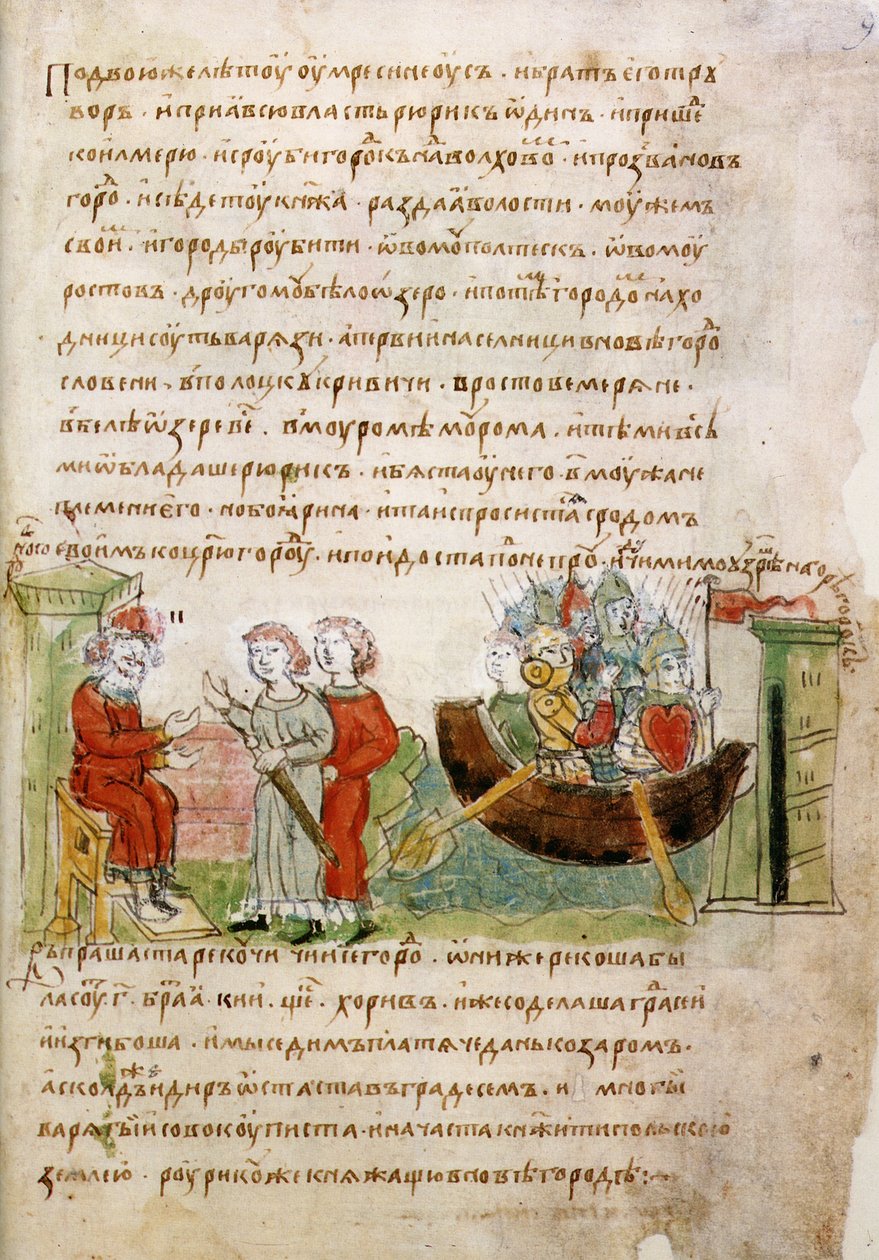 Подвоюжелѣтоу оумресинеоусъ · ибратъ егот рꙋ
воръ · и приа всю власть рюрикъ ѡдинъ · и пришеⷣ
коилмерю · исроубигороⷣкъ наⷣволховоⷨ · ипрозъвановъ
гороⷣ · исѣдетоу кнѧжа · раздаа волости · моужемъ
своиⷨ · игородыроубити · ѡвомоу полтескъ · ѡвомоу
ростовъ · дроугомоу бѣлоѡзеро · ипотѣⷨ городоⷨ нахо
дницисоуть варѧзи · апервиинаселници вновѣгороⷣ
словени · вполоцкꙋ кривичи · вростове мерѧне ·
вбелѣѡзере веⷭ · вмоуромѣ моурома · итѣми всѣ
ми ѡбладаше рюрикъ · ибѧста оунего · в҃ моужа не
племени его · нобоѧрина · ита испросистаⷭѧ сродомъ
своимъ коцр҃югороⷣоу · ипоидоста понепроⷹ · идꙋчи мимо узрѣⷲ на
горѣ городокъ
Въпрашаста рекоучи чии сегороⷣ · ѡниже рекоша бы
ла соуⷮ · г҃ · браⷮа · кии · щеⷦ · хоривъ · ижесоделаша граⷣкъсии
иизгибоша · имы седимъ платѧче дань козаромъ ·
асколдъжеидиръ ѡстаста въградесемъ · и многы
варѧгы исовокоуписта · иначаста кнѧжити польскою
землею · роурикоу же кнѧжащю вновѣгородѣ :